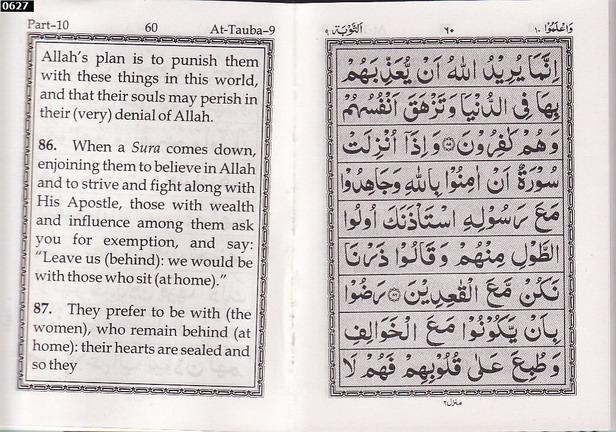 0627
Part-10 60 At-Tauba-9
Allah's plan is to punish them
with these things in this world,
and that their souls may perish in
their (very) denial of Allah.
86. When a Sura comes down,
enjoining them to believe in Allah
and to strive and fight along with
His Apostle, those with wealth
and influence among them ask
you for exemption, and say:
"Leave us (behind): we would be
with those who sit (at home)."
87. They prefer to be with (the
women), who remain behind (at
home): their hearts are sealed and
so they
وَاعْلَمُوْا ١٠ ٦٠ اَلتَّوْبَة ٩
اِنَّمَا يُرِيْدُ اللّٰهُ اَنْ يُّعَذِّبَهُمْ
بِهَا فِى الدُّنْيَا وَتَزْهَقَ اَنْفُسُهُمْ
وَهُمْ كٰفِرُوْنَ ﴿٨٥﴾ وَاِذَآ اُنْزِلَتْ
سُوْرَةٌ اَنْ اٰمِنُوْا بِاللّٰهِ وَجَاهِدُوْا
مَعَ رَسُوْلِهِ اسْتَاْذَنَكَ اُولُوا
الطَّوْلِ مِنْهُمْ وَقَالُوْا ذَرْنَا
نَكُنْ مَّعَ الْقٰعِدِيْنَ ﴿٨٦﴾ رَضُوْا
بِاَنْ يَّكُوْنُوْا مَعَ الْخَوَالِفِ
وَطُبِعَ عَلٰى قُلُوْبِهِمْ فَهُمْ لَا
منزل ٢